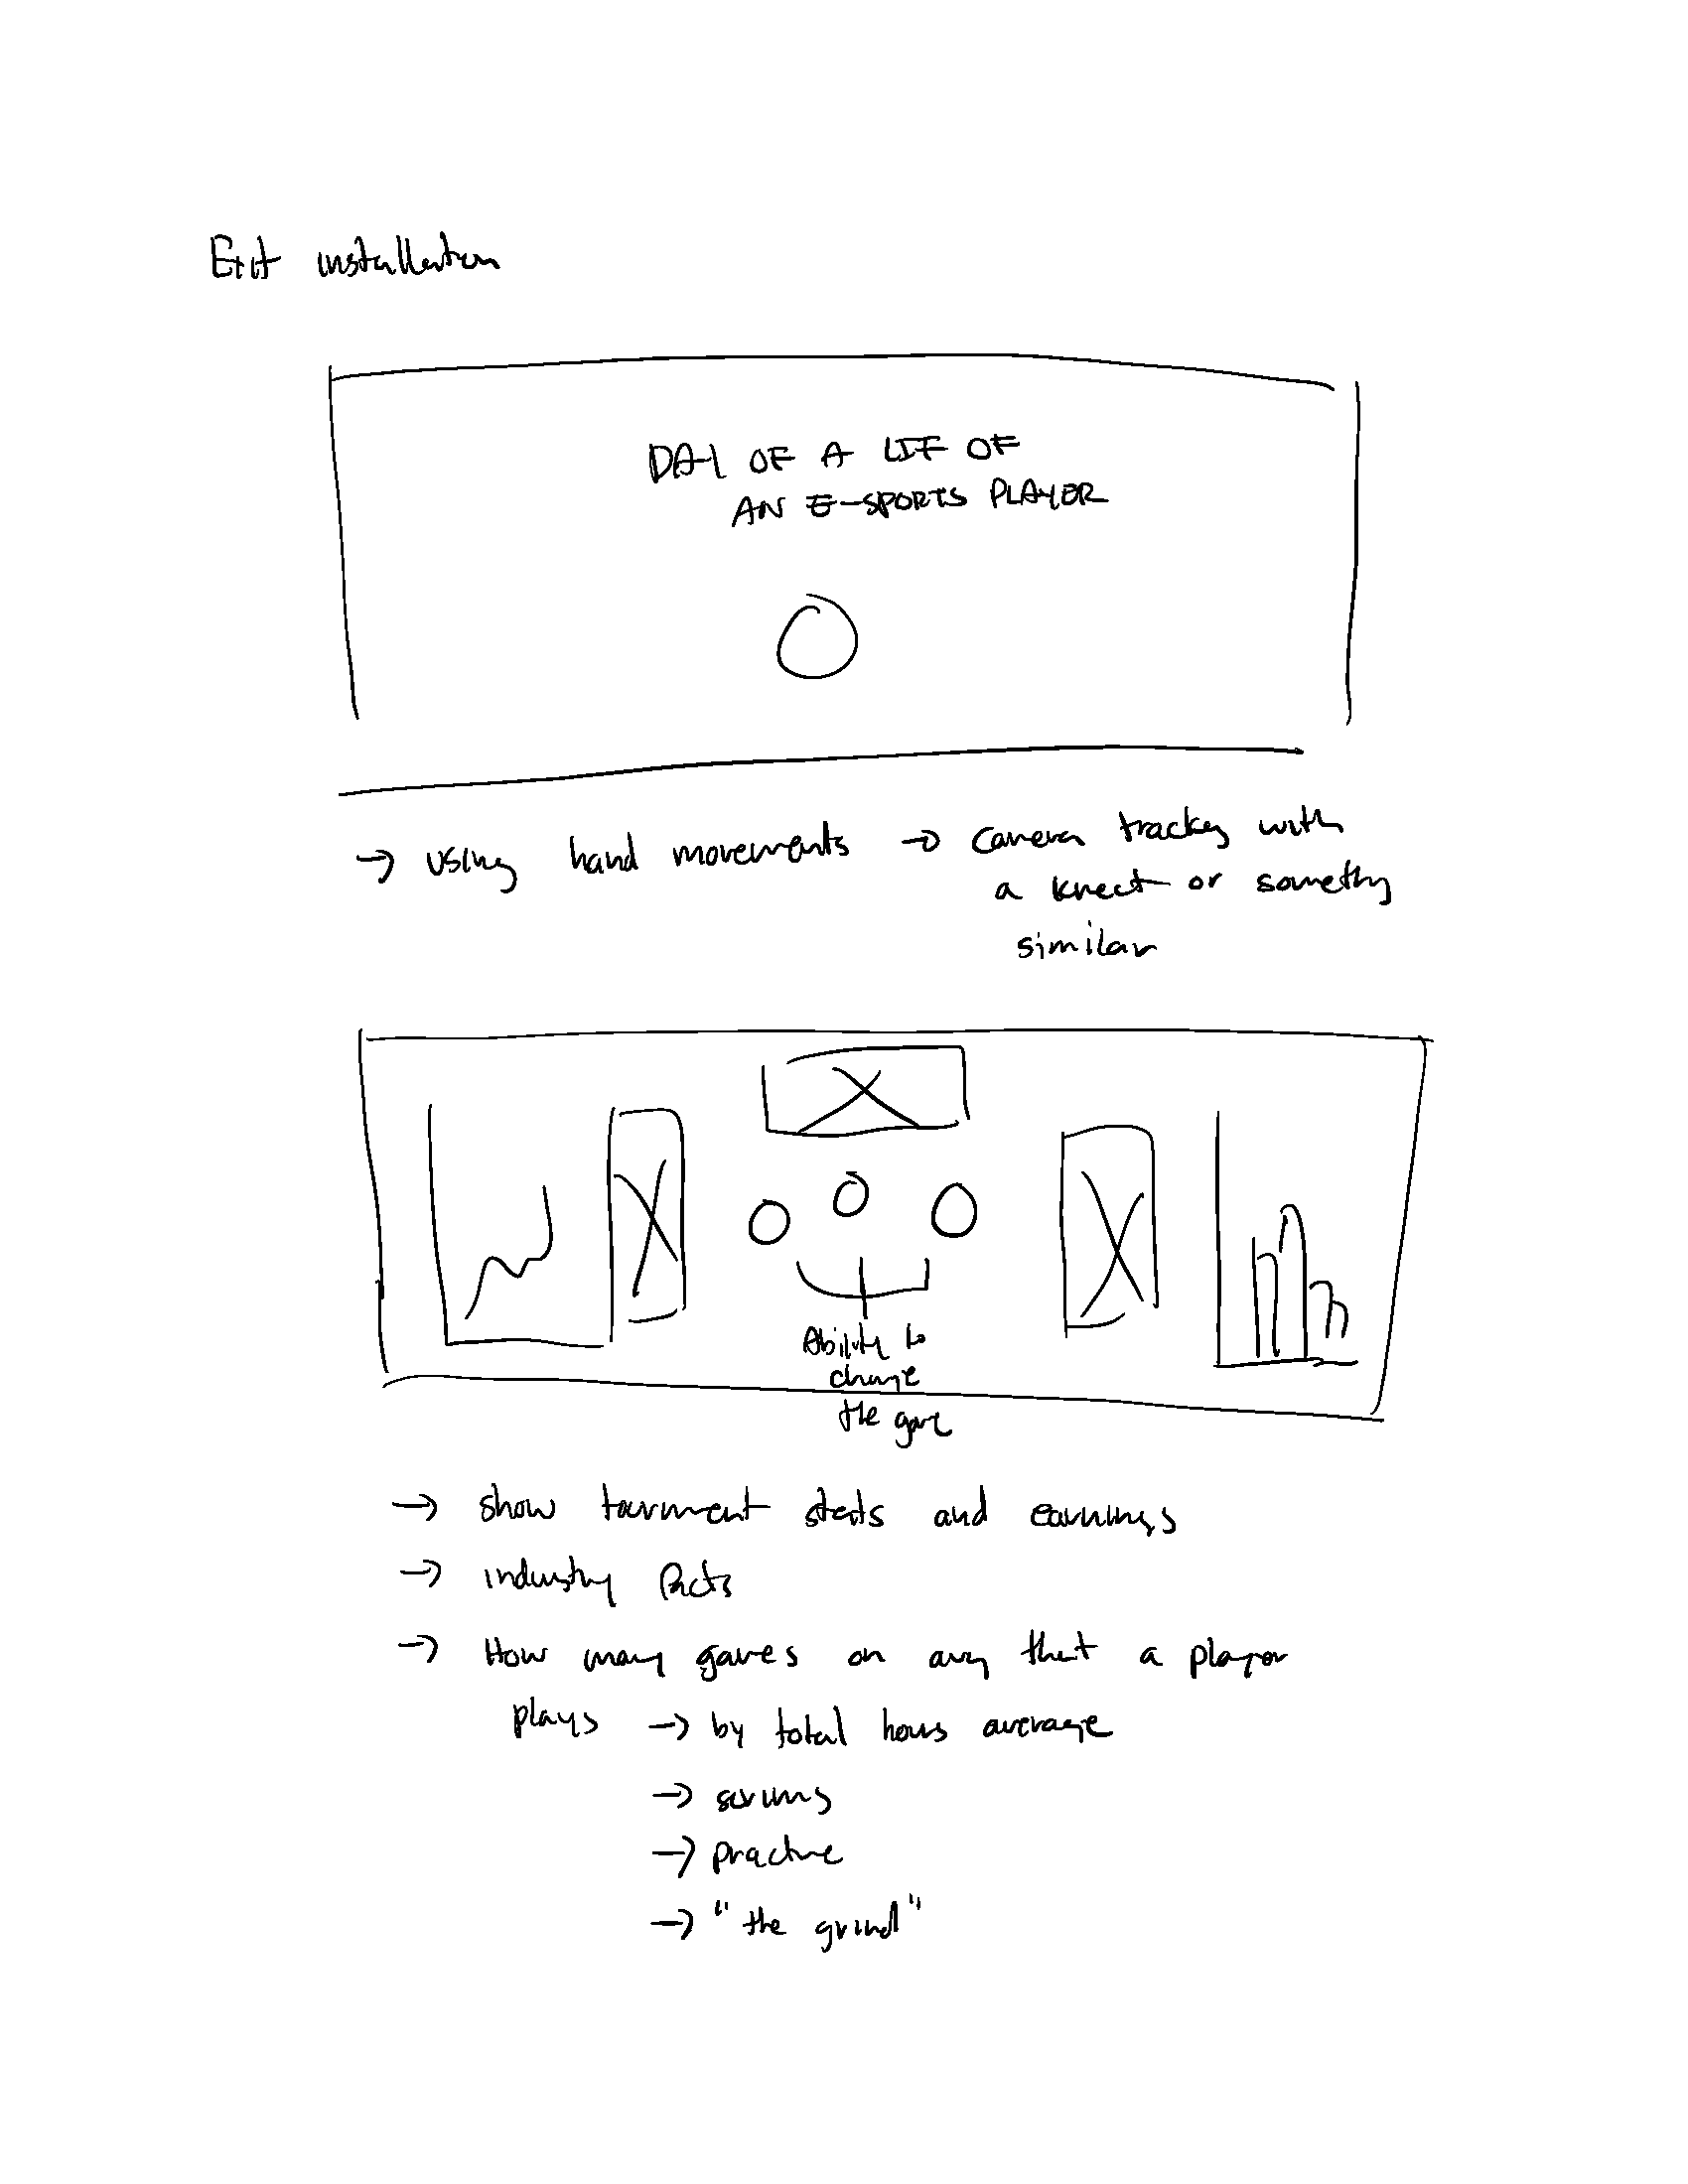 Exit installation
DAY OF A LIFE OF
AN E-SPORTS PLAYER
→ using hand movements → camera tracking with
a kinect or something
similar
Ability to
change
the game
→ show tournment stats and earnings
→ industry facts
→ How many games on avg that a player
plays → by total hours average
→ scrims
→ practice
→ "the grind"